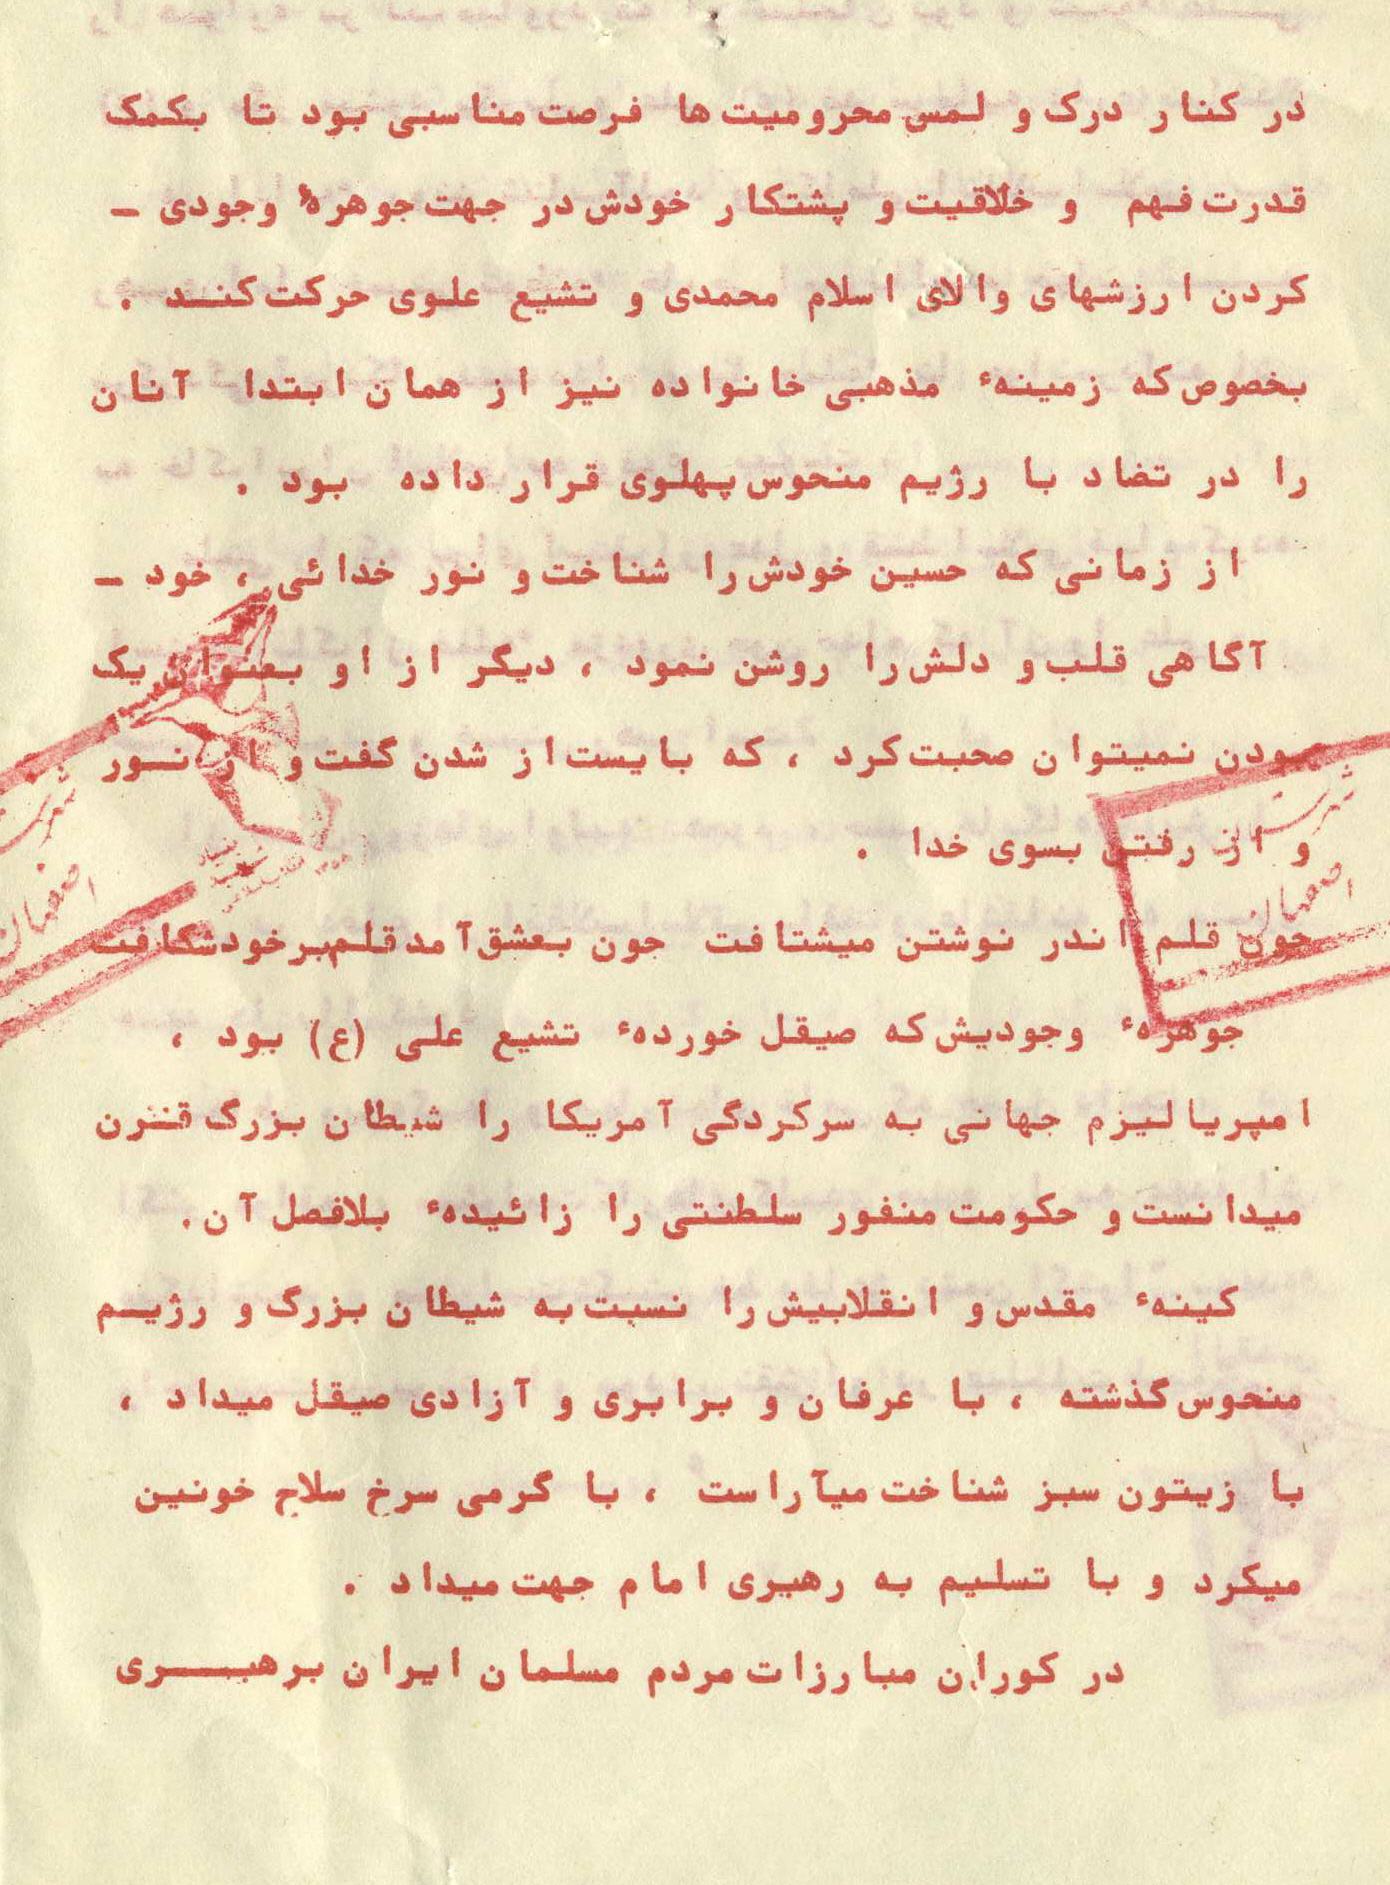 در کنار درک و لمس محرومیت ها فرصت مناسبی بود تا بکمک
قدرت فهم و خلاقیت و پشتکار خودش در جهت جوهرهٔ وجودی -
کردن ارزشهای والای اسلام محمدی و تشیع علوی حرکت کند .
بخصوص که زمینهٔ مذهبی خانواده نیز از همان ابتدا آنان
را در تضاد با رژیم منحوس پهلوی قرار داده بود .
از زمانی که حسین خودش را شناخت و نور خدائی ، خود -
آگاهی قلب و دلش را روشن نمود ، دیگر از او بعنوان یک
بودن نمیتوان صحبت کرد ، که بایست از شدن گفت و از نور
و از رفتن بسوی خدا .
چون قلم اندر نوشتن میشتافت چون بعشق آمد قلم بر خود شکافت
جوهرهٔ وجودیش که صیقل خوردهٔ تشیع علی (ع) بود ،
امپریالیزم جهانی به سرکردگی آمریکا را شیطان بزرگ قرن
میدانست و حکومت منفور سلطنتی را زائیدهٔ بلافصل آن .
کینهٔ مقدس و انقلابیش را نسبت به شیطان بزرگ و رژیم
منحوس گذشته ، با عرفان و برابری و آزادی صیقل میداد ،
با زیتون سبز شناخت میآراست ، با گرمی سرخ سلاح خونین
میکرد و با تسلیم به رهبری امام جهت میداد .
در کوران مبارزات مردم مسلمان ایران برهبری
اصفهان
اصفهان